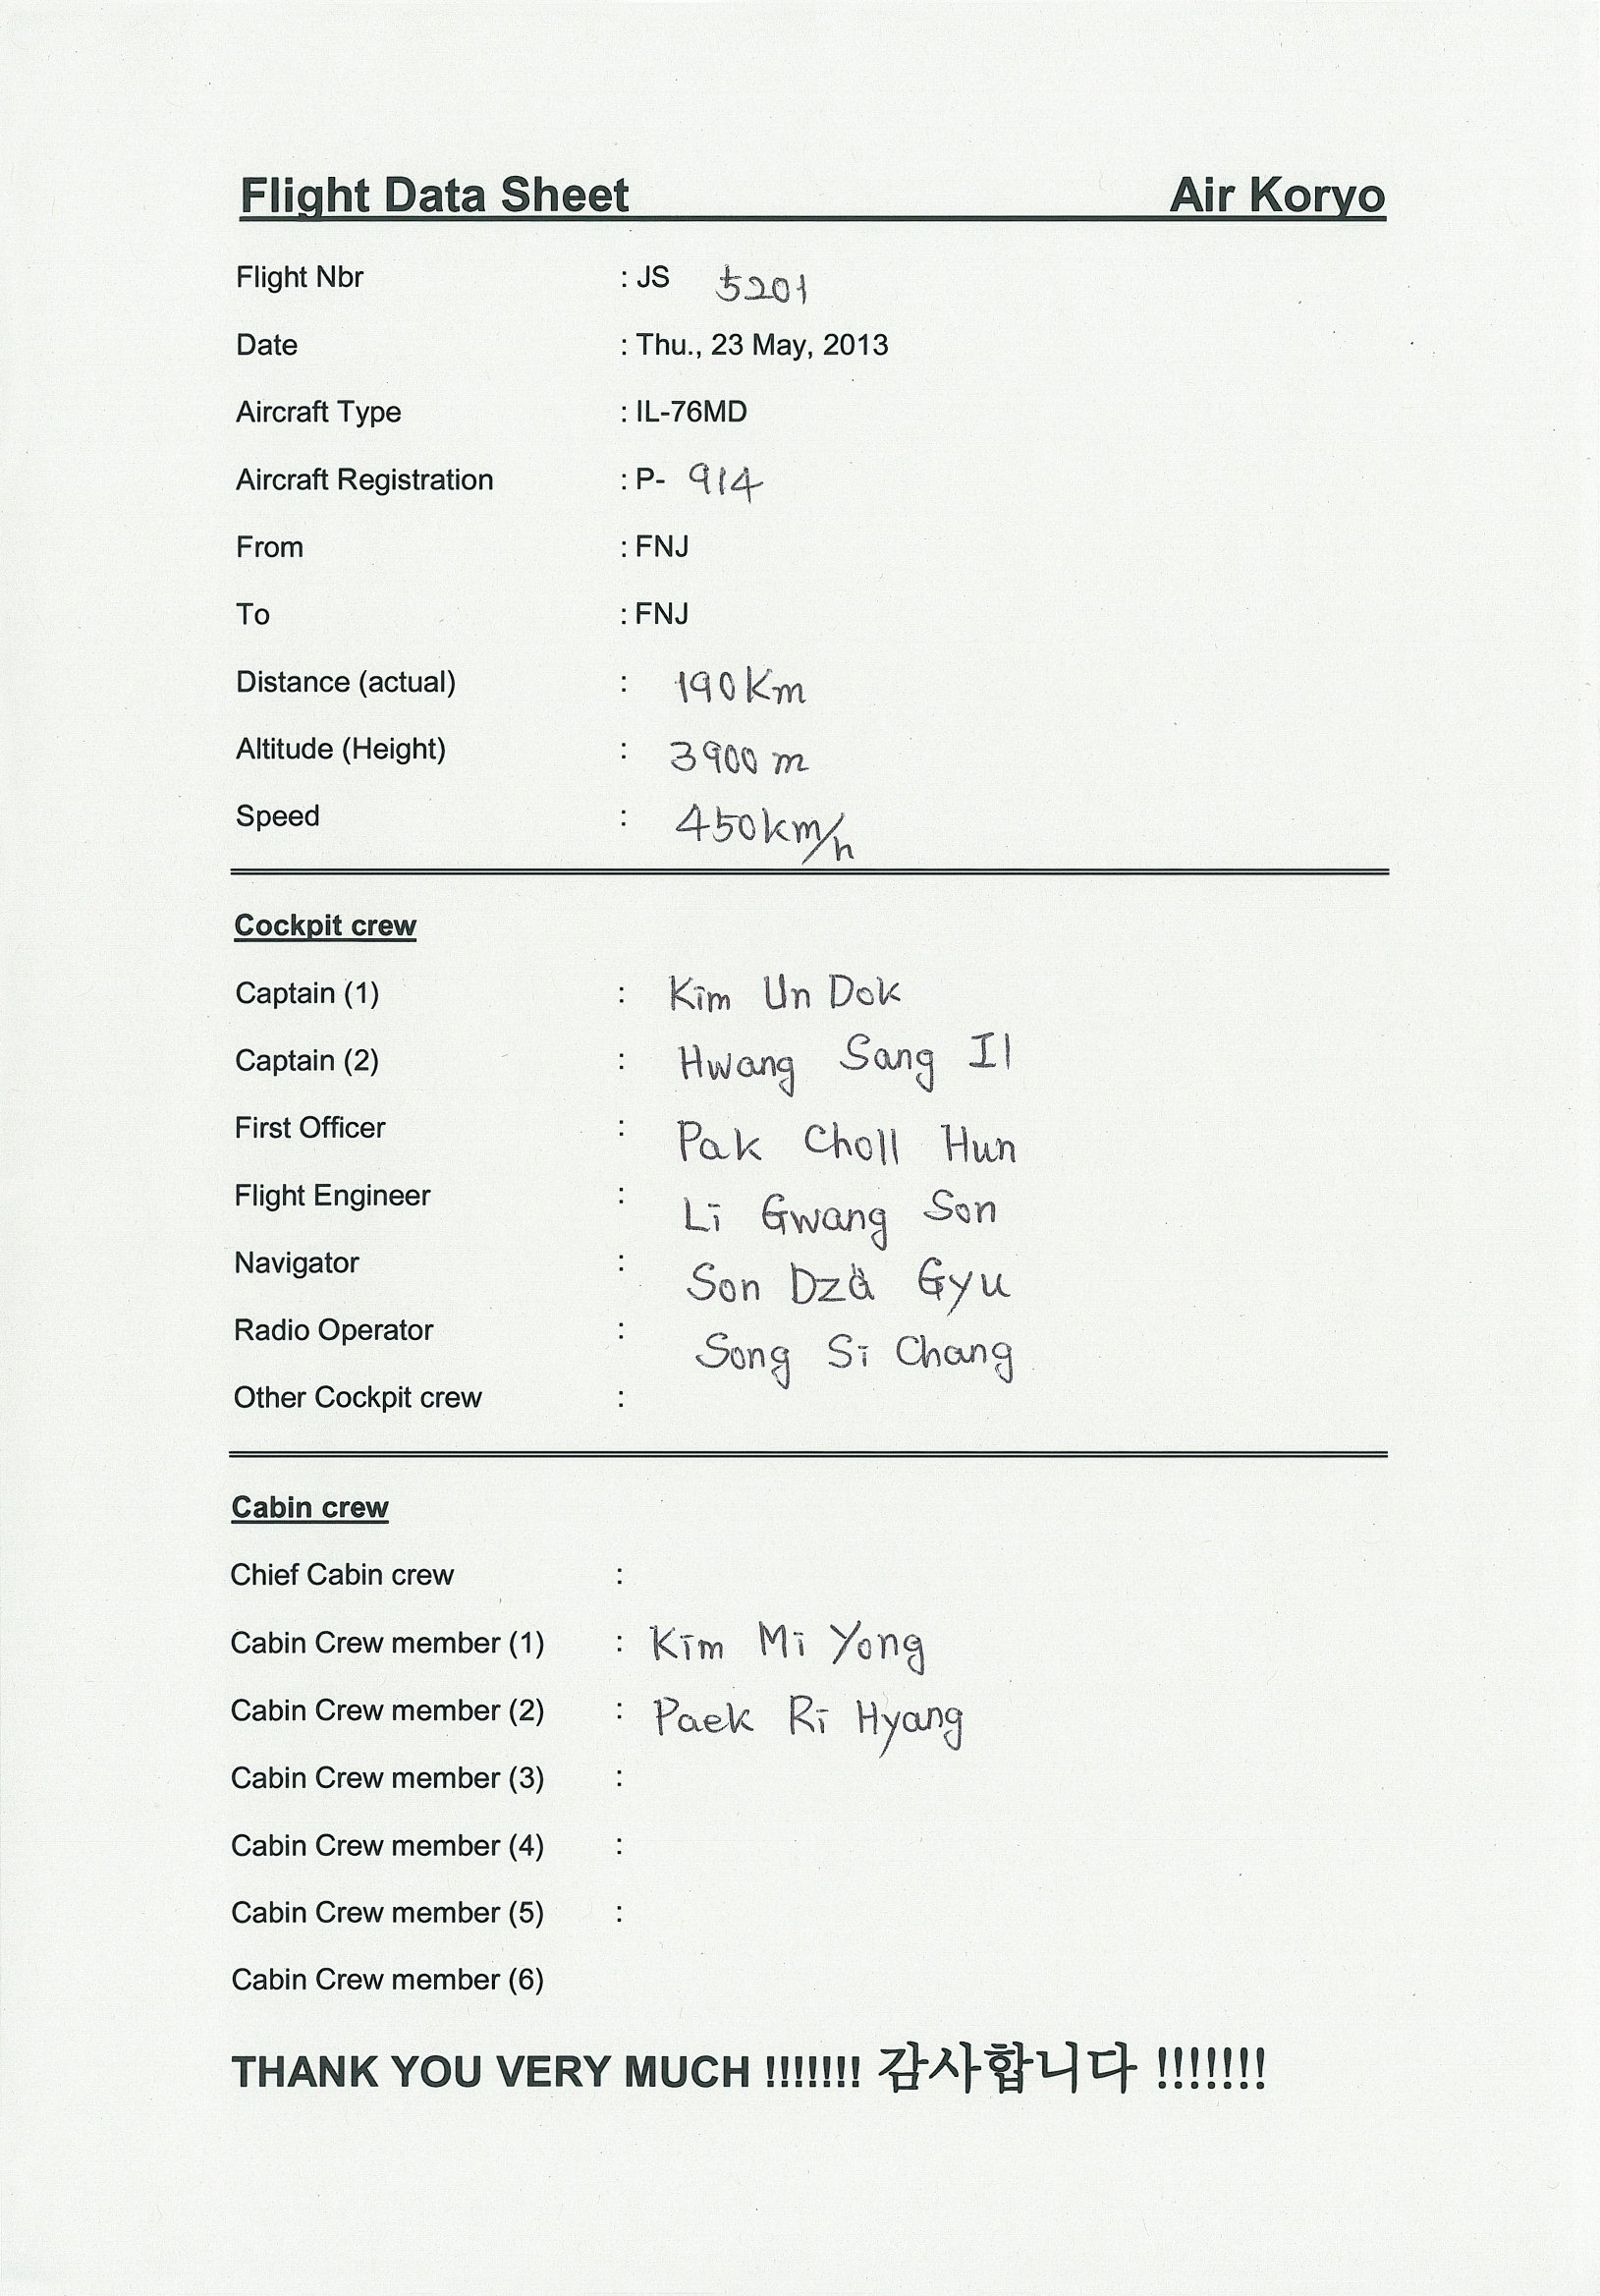 Flight Data Sheet Air Koryo
Flight Nbr : JS 5201
Date : Thu., 23 May, 2013
Aircraft Type : IL-76MD
Aircraft Registration : P- 914
From : FNJ
To : FNJ
Distance (actual) : 190Km
Altitude (Height) : 3900 m
Speed : 450km/h
Cockpit crew
Captain (1) : Kim Un Dok
Captain (2) : Hwang Sang Il
First Officer : Pak Choll Hun
Flight Engineer : Li Gwang Son
Navigator : Son Dzä Gyu
Radio Operator : Song Si Chang
Other Cockpit crew :
Cabin crew
Chief Cabin crew :
Cabin Crew member (1) : Kim Mi Yong
Cabin Crew member (2) : Paek Ri Hyang
Cabin Crew member (3) :
Cabin Crew member (4) :
Cabin Crew member (5) :
Cabin Crew member (6)
THANK YOU VERY MUCH !!!!!!! 감사합니다 !!!!!!!